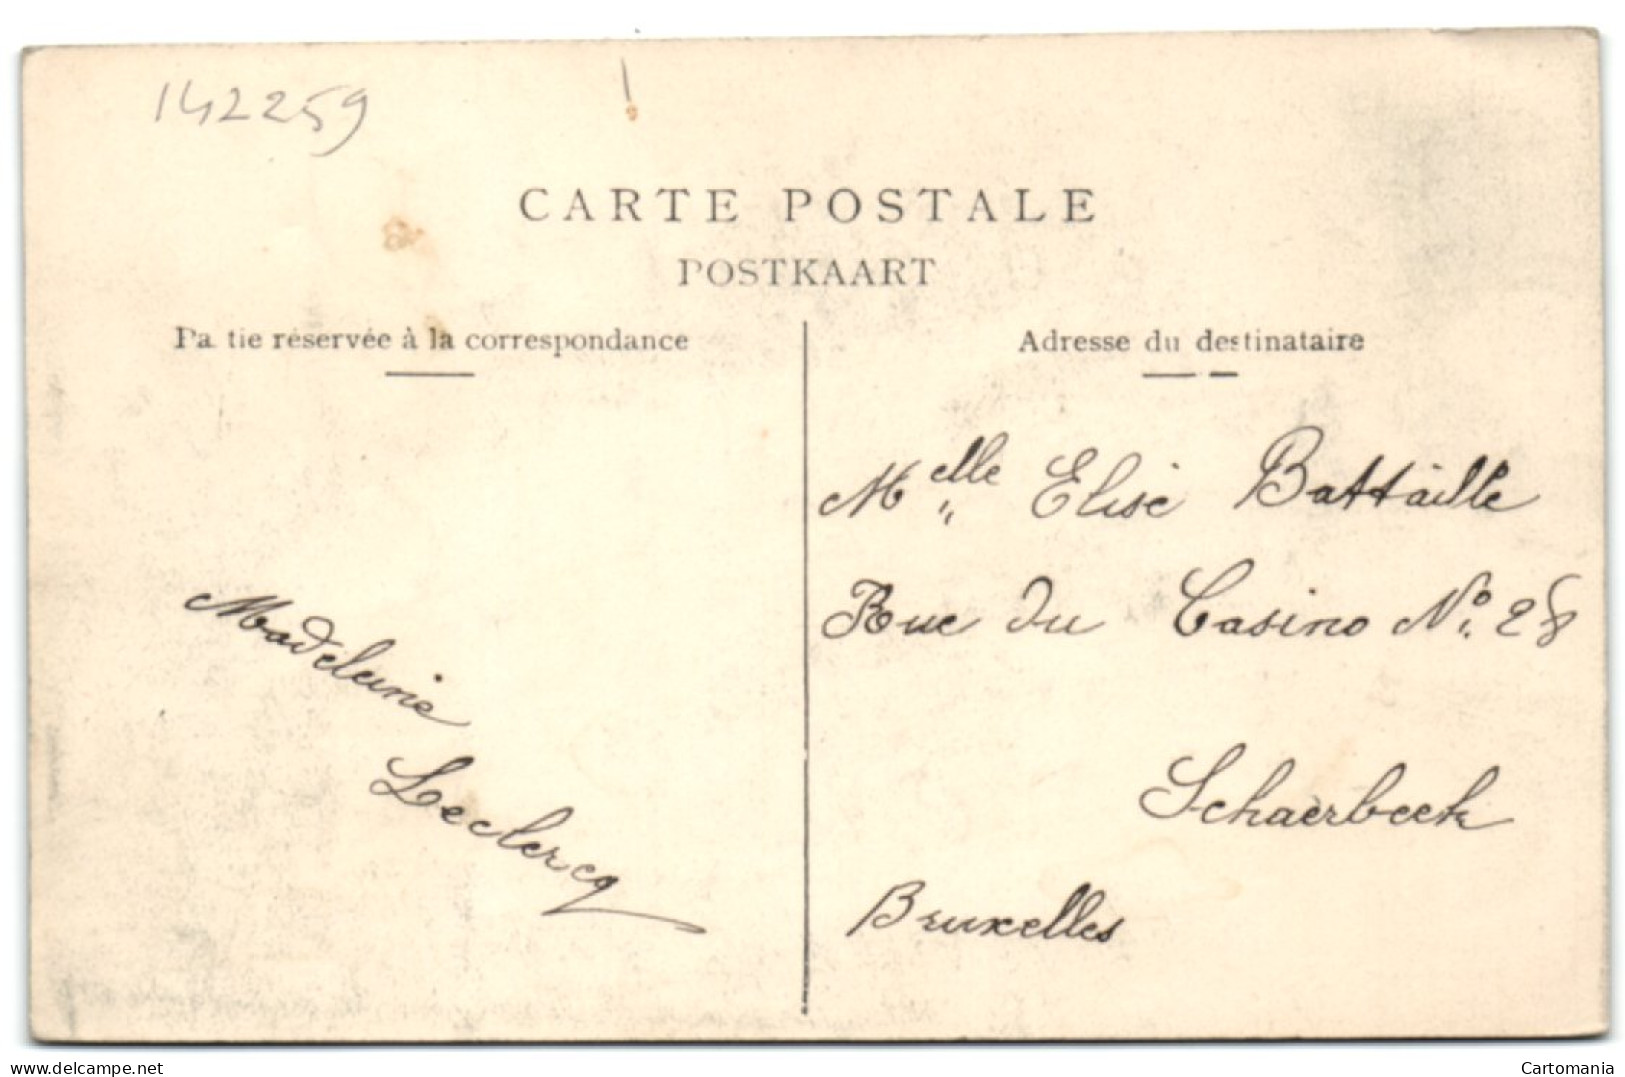 142259
CARTE POSTALE
POSTKAART
Pa tie réservée à la correspondance
Adresse du destinataire
Melle Elise Battaille
Rue du Casino No. 28
Schaerbeek
Bruxelles
Madeleine
Leclercq
delcampe.net
Cartomania